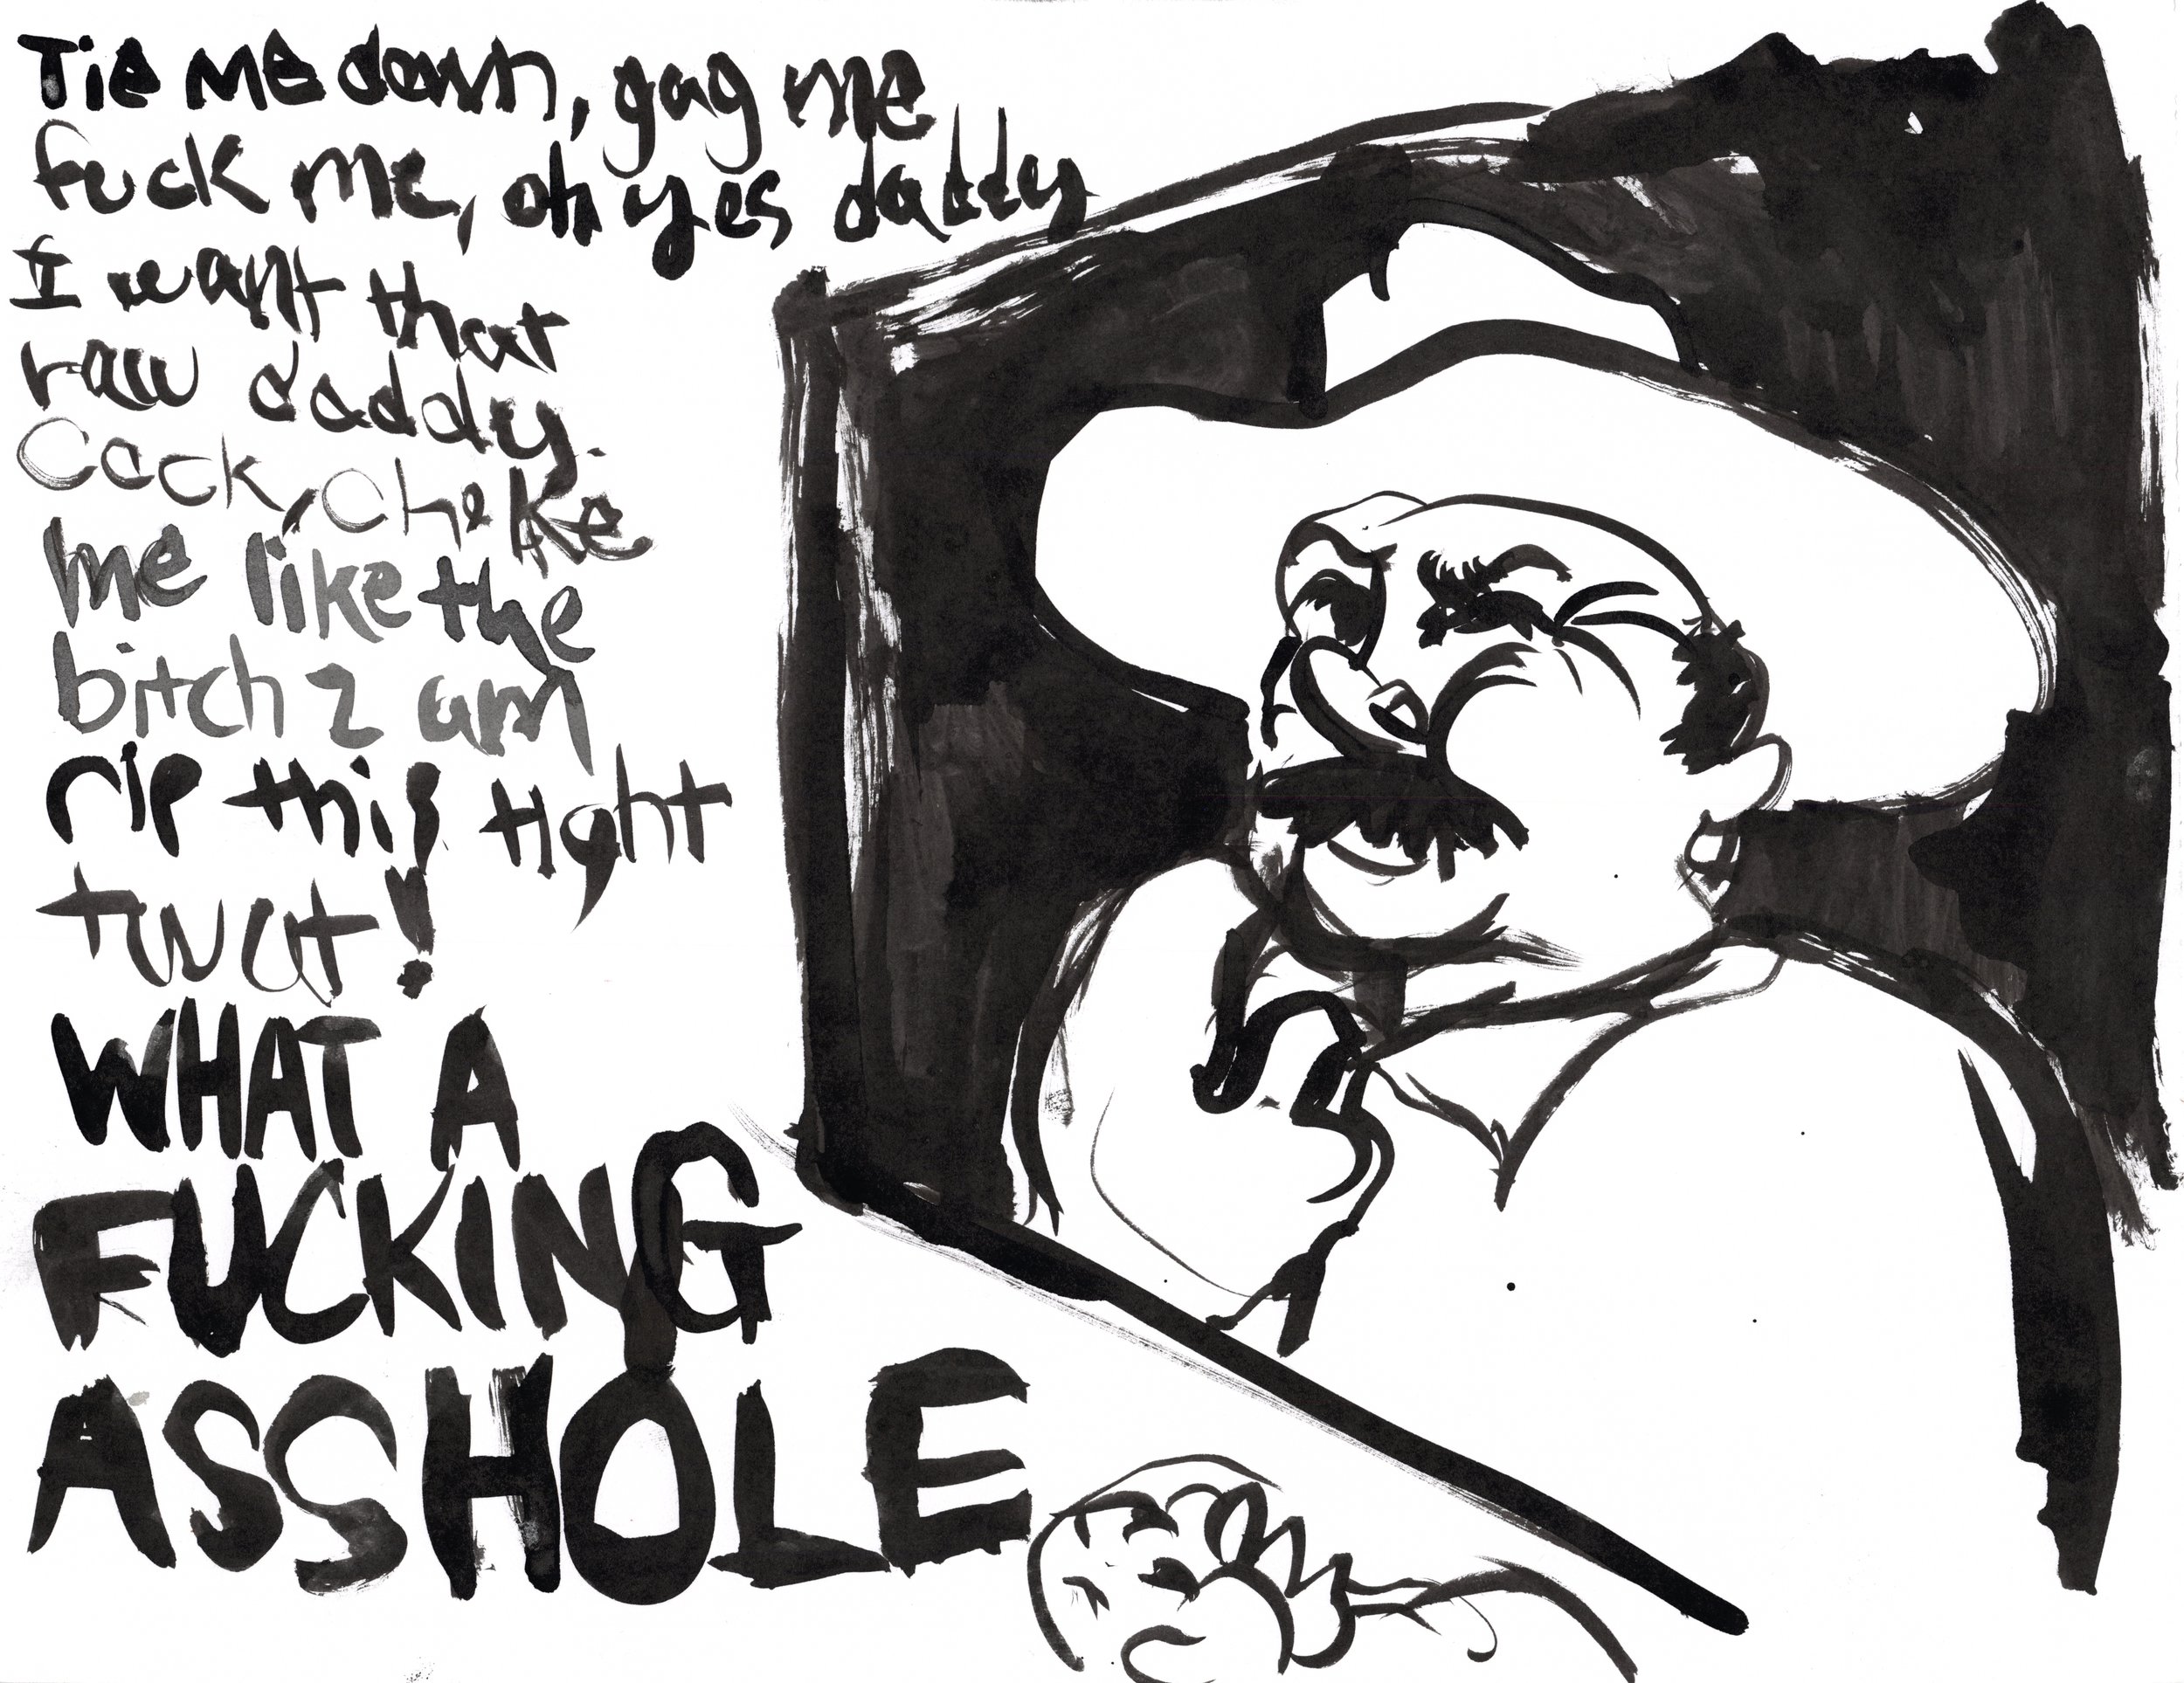 Tie me down, gag me
fuck me, oh yes daddy
I want that
raw daddy.
Cock, choke
me like the
bitch I am
rip this tight
twat!
WHAT A
FUCKING
ASSHOLE